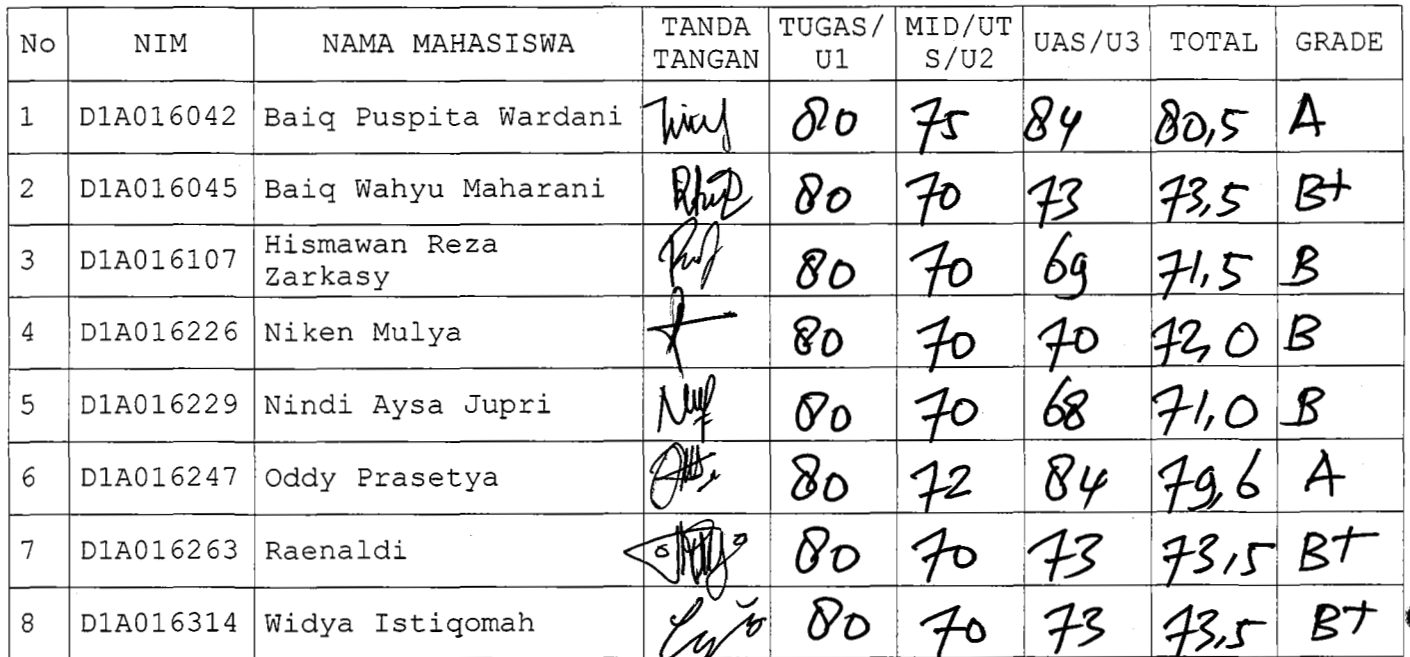 No NIM NAMA MAHASISWA TANDA TANGAN TUGAS/U1 MID/UTS/U2 UAS/U3 TOTAL GRADE
1 D1A016042 Baiq Puspita Wardani 80 75 84 80,5 A
2 D1A016045 Baiq Wahyu Maharani 80 70 73 73,5 B+
3 D1A016107 Hismawan Reza Zarkasy 80 70 69 71,5 B
4 D1A016226 Niken Mulya 80 70 70 72,0 B
5 D1A016229 Nindi Aysa Jupri 80 70 68 71,0 B
6 D1A016247 Oddy Prasetya 80 72 84 79,6 A
7 D1A016263 Raenaldi 80 70 73 73,5 B+
8 D1A016314 Widya Istiqomah 80 70 73 73,5 B+